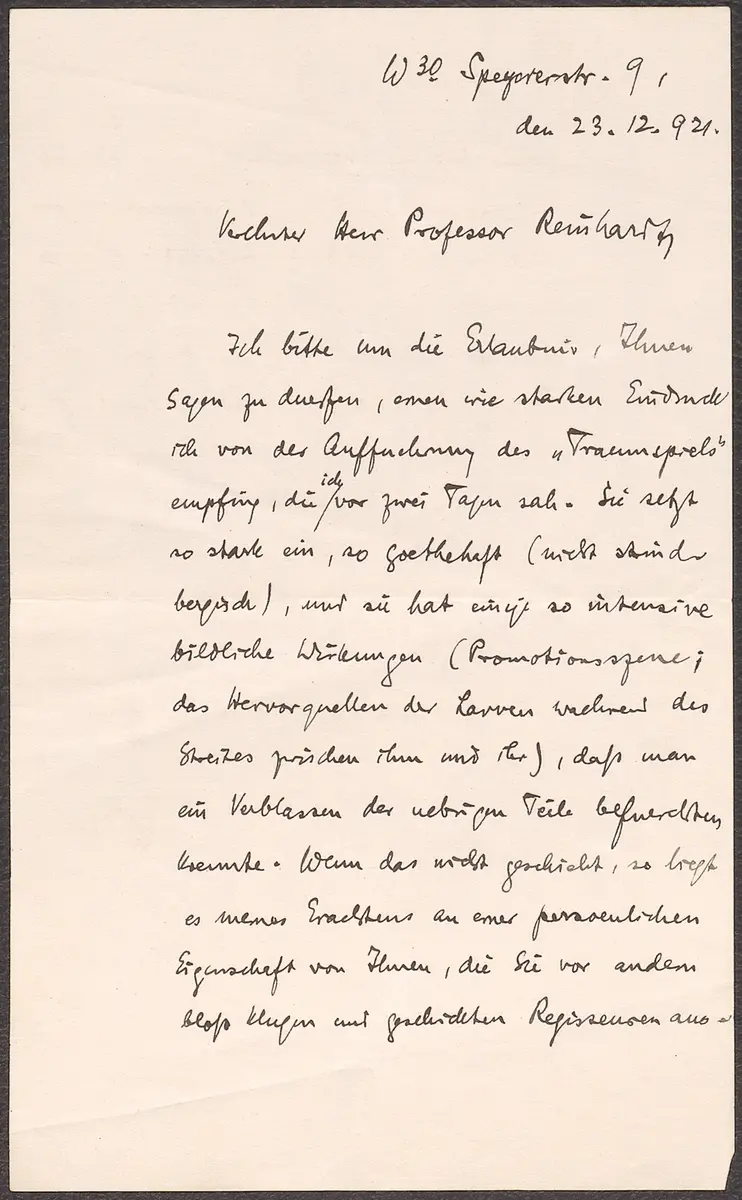 W 30 Speyererstr. 9,
den 23. 12. 921.
Verehrter Herr Professor Reinhardt,
Ich bitte um die Erlaubnis, Ihnen
sagen zu duerfen, einen wie starken Eindruck
ich von der Auffuehrung des „Traumspiels"
empfing, die ich vor zwei Tagen sah. Sie setzt
so stark ein, so goethehaft (nicht strind-
bergisch), und sie hat einige so intensive
bildliche Wirkungen (Promotionsszene;
das Hervorquellen der Larven waehrend des
Streites zwischen ihm und ihr), daß man
ein Verblassen der uebrigen Teile befuerchten
koennte. Wenn das nicht geschieht, so liegt
es meines Erachtens an einer persoenlichen
Eigenschaft von Ihnen, die Sie vor andern
bloß klugen und geschickten Regisseuren aus-